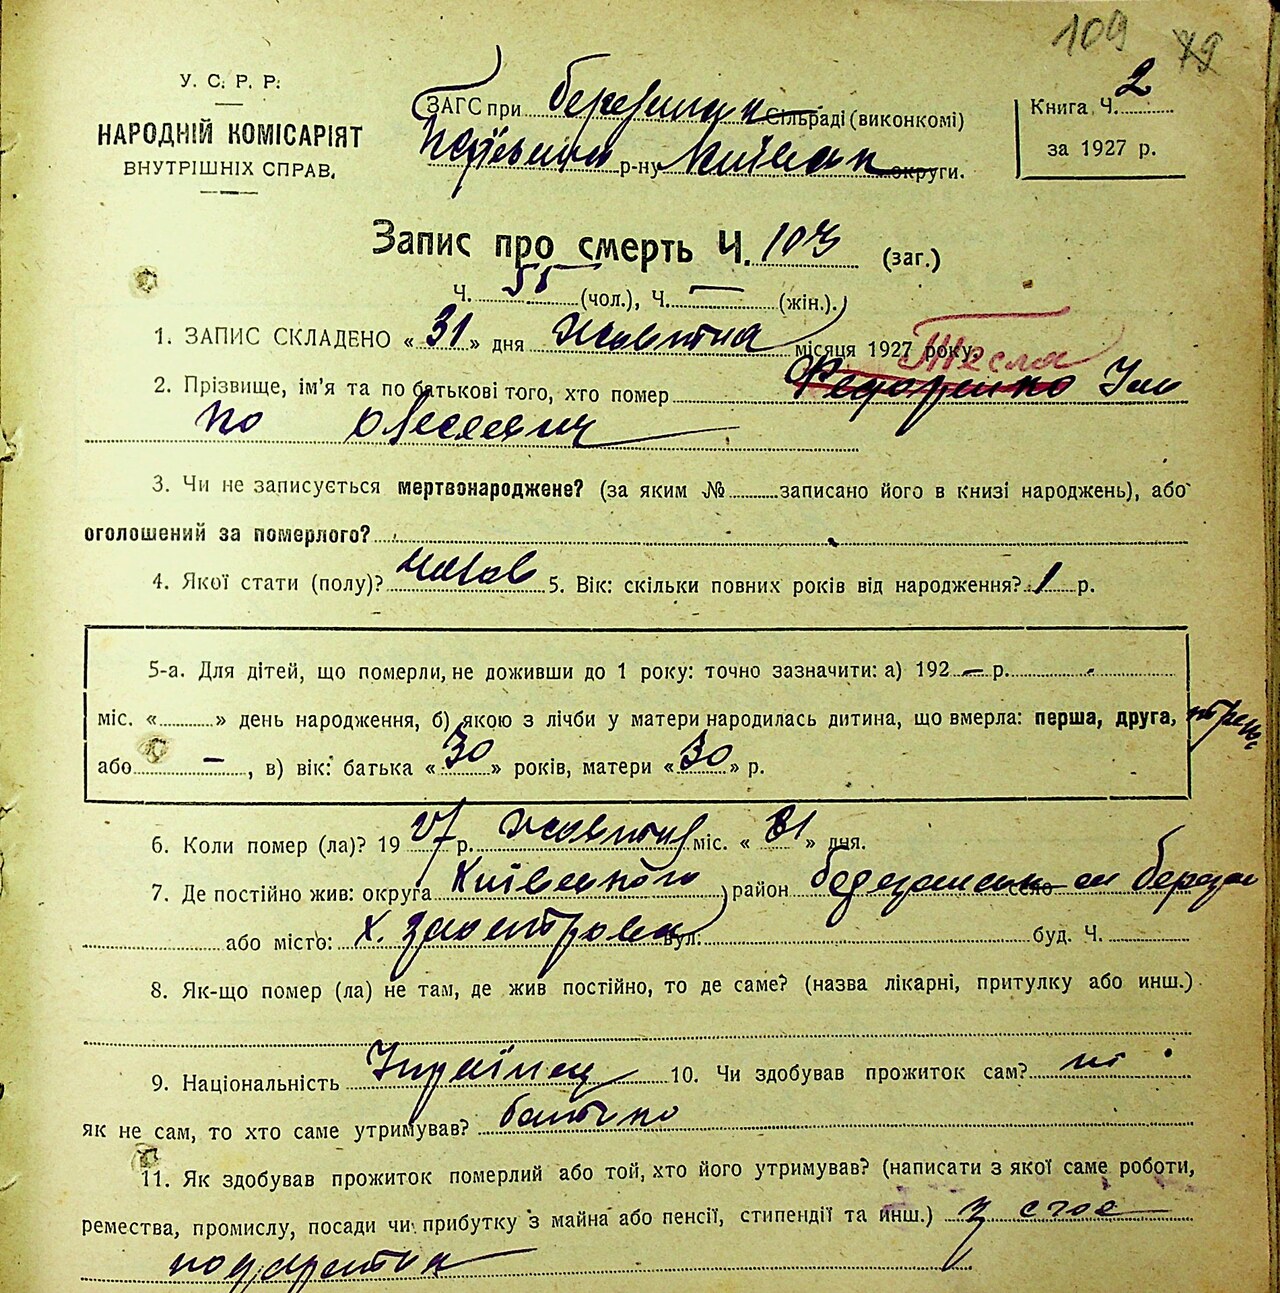 109 79
У. С. Р. Р.
НАРОДНІЙ КОМІСАРІЯТ
ВНУТРІШНІХ СПРАВ.
ЗАГС при Березанск Сільраді (виконкомі)
р-ну Київск округи.
Книга Ч. 2
за 1927 р.
Запис про смерть Ч. 103 (заг.)
Ч. 55 (чол.), Ч. — (жін.).
1. ЗАПИС СКЛАДЕНО « 31 » дня Жовтня місяця 1927 року.
Тесля
2. Прізвище, ім'я та по батькові того, хто помер Федоренко
Олесеевич
3. Чи не записується мертвонароджене? (за яким № записано його в книзі народжень), або
оголошений за померлого?
4. Якої стати (полу)? 5. Вік: скільки повних років від народження? 1 р.
5-а. Для дітей, що померли, не доживши до 1 року: точно зазначити: а) 192 — р.
міс. « » день народження, б) якою з лічби у матери народилась дитина, що вмерла: перша, друга,
або — , в) вік: батька « 30 » років, матери « 30 » р.
6. Коли помер (ла)? 19 27 р. Жовтня міс. « 31 » дня.
7. Де постійно жив: округа Київського район село Березан
або місто: х. вул. буд. Ч.
8. Як-що помер (ла) не там, де жив постійно, то де саме? (назва лікарні, притулку або инш.)
9. Національність Українец 10. Чи здобував прожиток сам? ні
як не сам, то хто саме утримував? батько
11. Як здобував прожиток померлий або той, хто його утримував? (написати з якої саме роботи,
ремества, промислу, посади чи прибутку з майна або пенсії, стипендії та инш.) З сгос
подарства